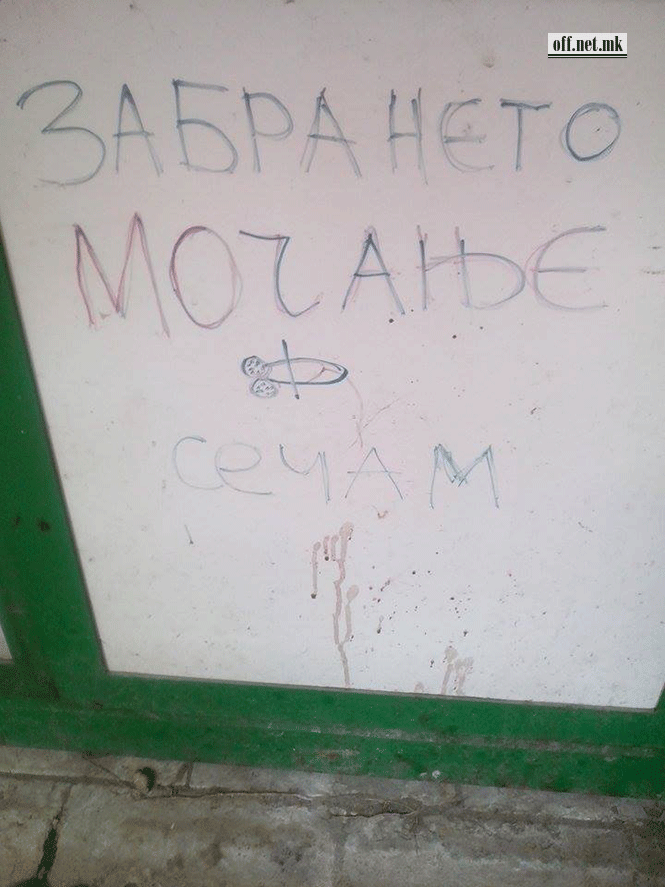 off.net.mk
ЗАБРАНЕТО
МОЧАЊЕ
СЕЧАМ